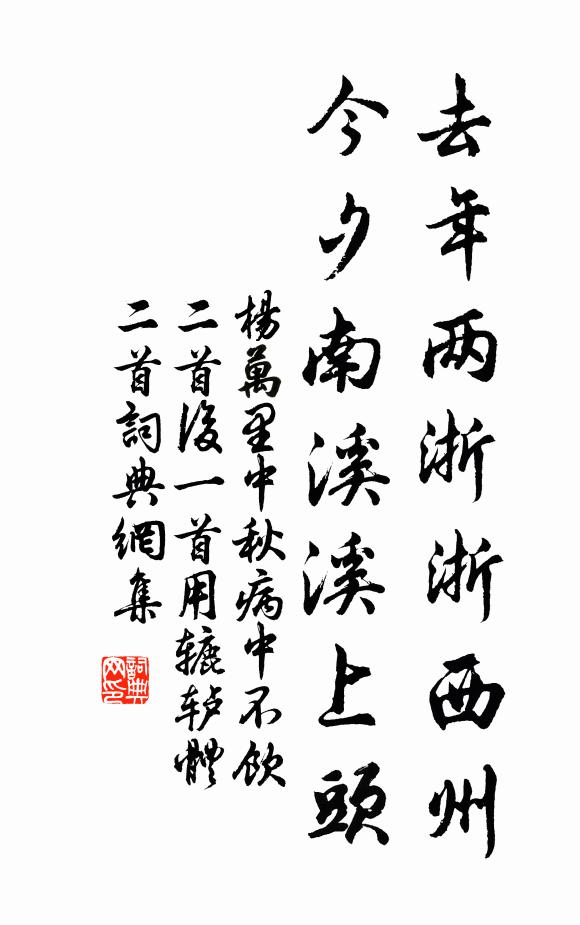 去年两浙浙西州
今夕南溪溪上頭
楊萬里中秋病中不飲
二首後一首用辘轳體
二首詞典網集
詞典网印